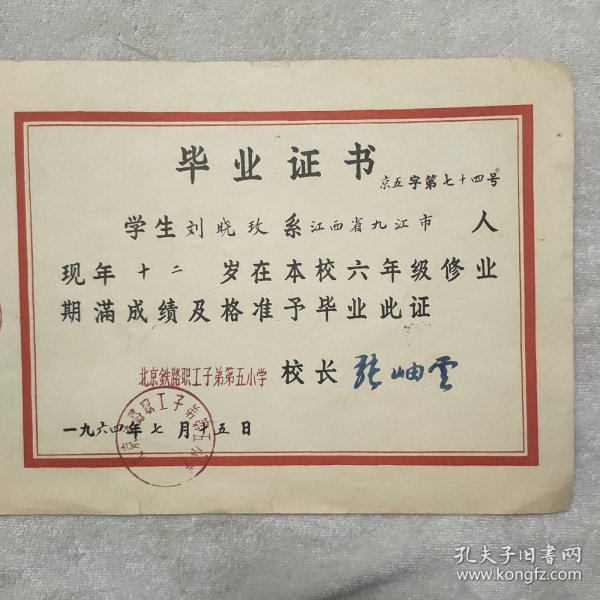 毕业证书
京五字第七十四号
学生刘晓玫系江西省九江市人
现年十二岁在本校六年级修业
期满成绩及格准予毕业此证
北京铁路职工子弟第五小学 校长 张岫云
一九六四年七月十五日
孔夫子旧书网
www.kongfz.com